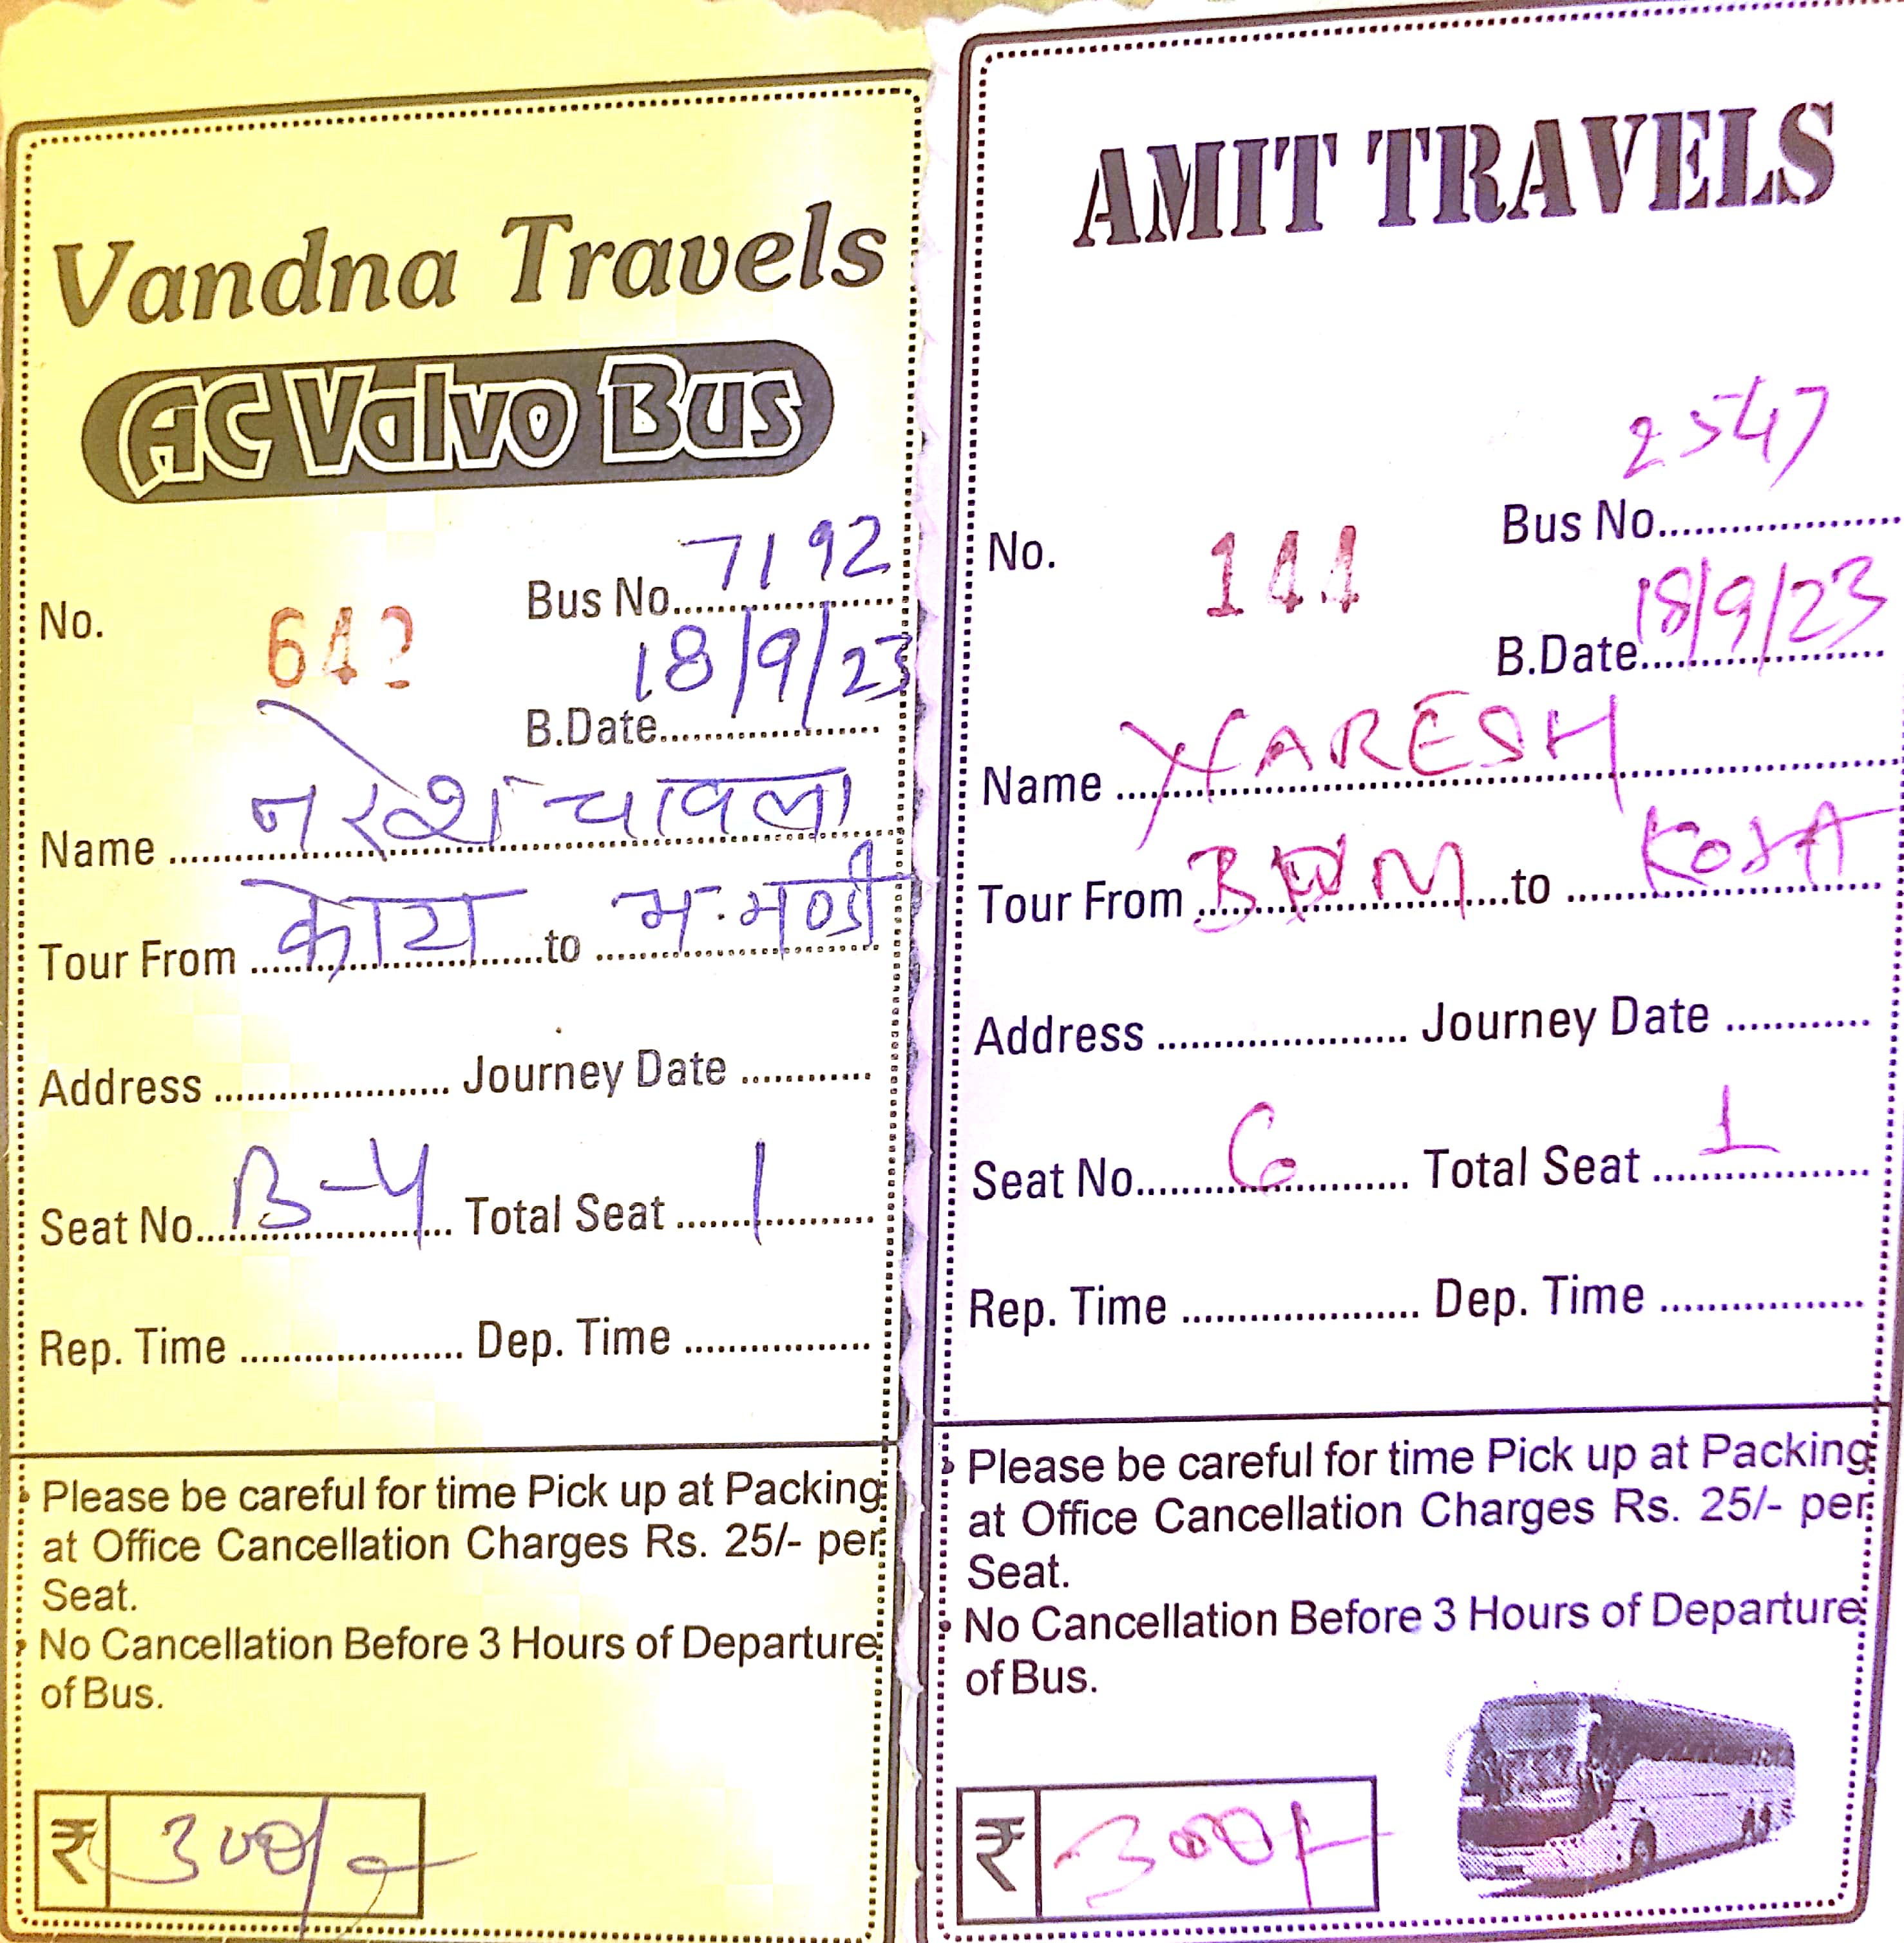 Vandna Travels
AC Valvo Bus
No. 642
Bus No. 7192
B.Date 18/9/23
Name नरेश चावला
Tour From कोटा to भ.मण्डी
Address Journey Date
Seat No. B-4 Total Seat 1
Rep. Time Dep. Time
Please be careful for time Pick up at Packing
at Office Cancellation Charges Rs. 25/- per
Seat.
No Cancellation Before 3 Hours of Departure
of Bus.
₹ 300/-
AMIT TRAVELS
2547
No. 144 Bus No.
B.Date 18/9/23
Name NARESH
Tour From to KOTA
Address Journey Date
Seat No. 6 Total Seat 1
Rep. Time Dep. Time
Please be careful for time Pick up at Packing
at Office Cancellation Charges Rs. 25/- per
Seat.
No Cancellation Before 3 Hours of Departure
of Bus.
₹ 300/-